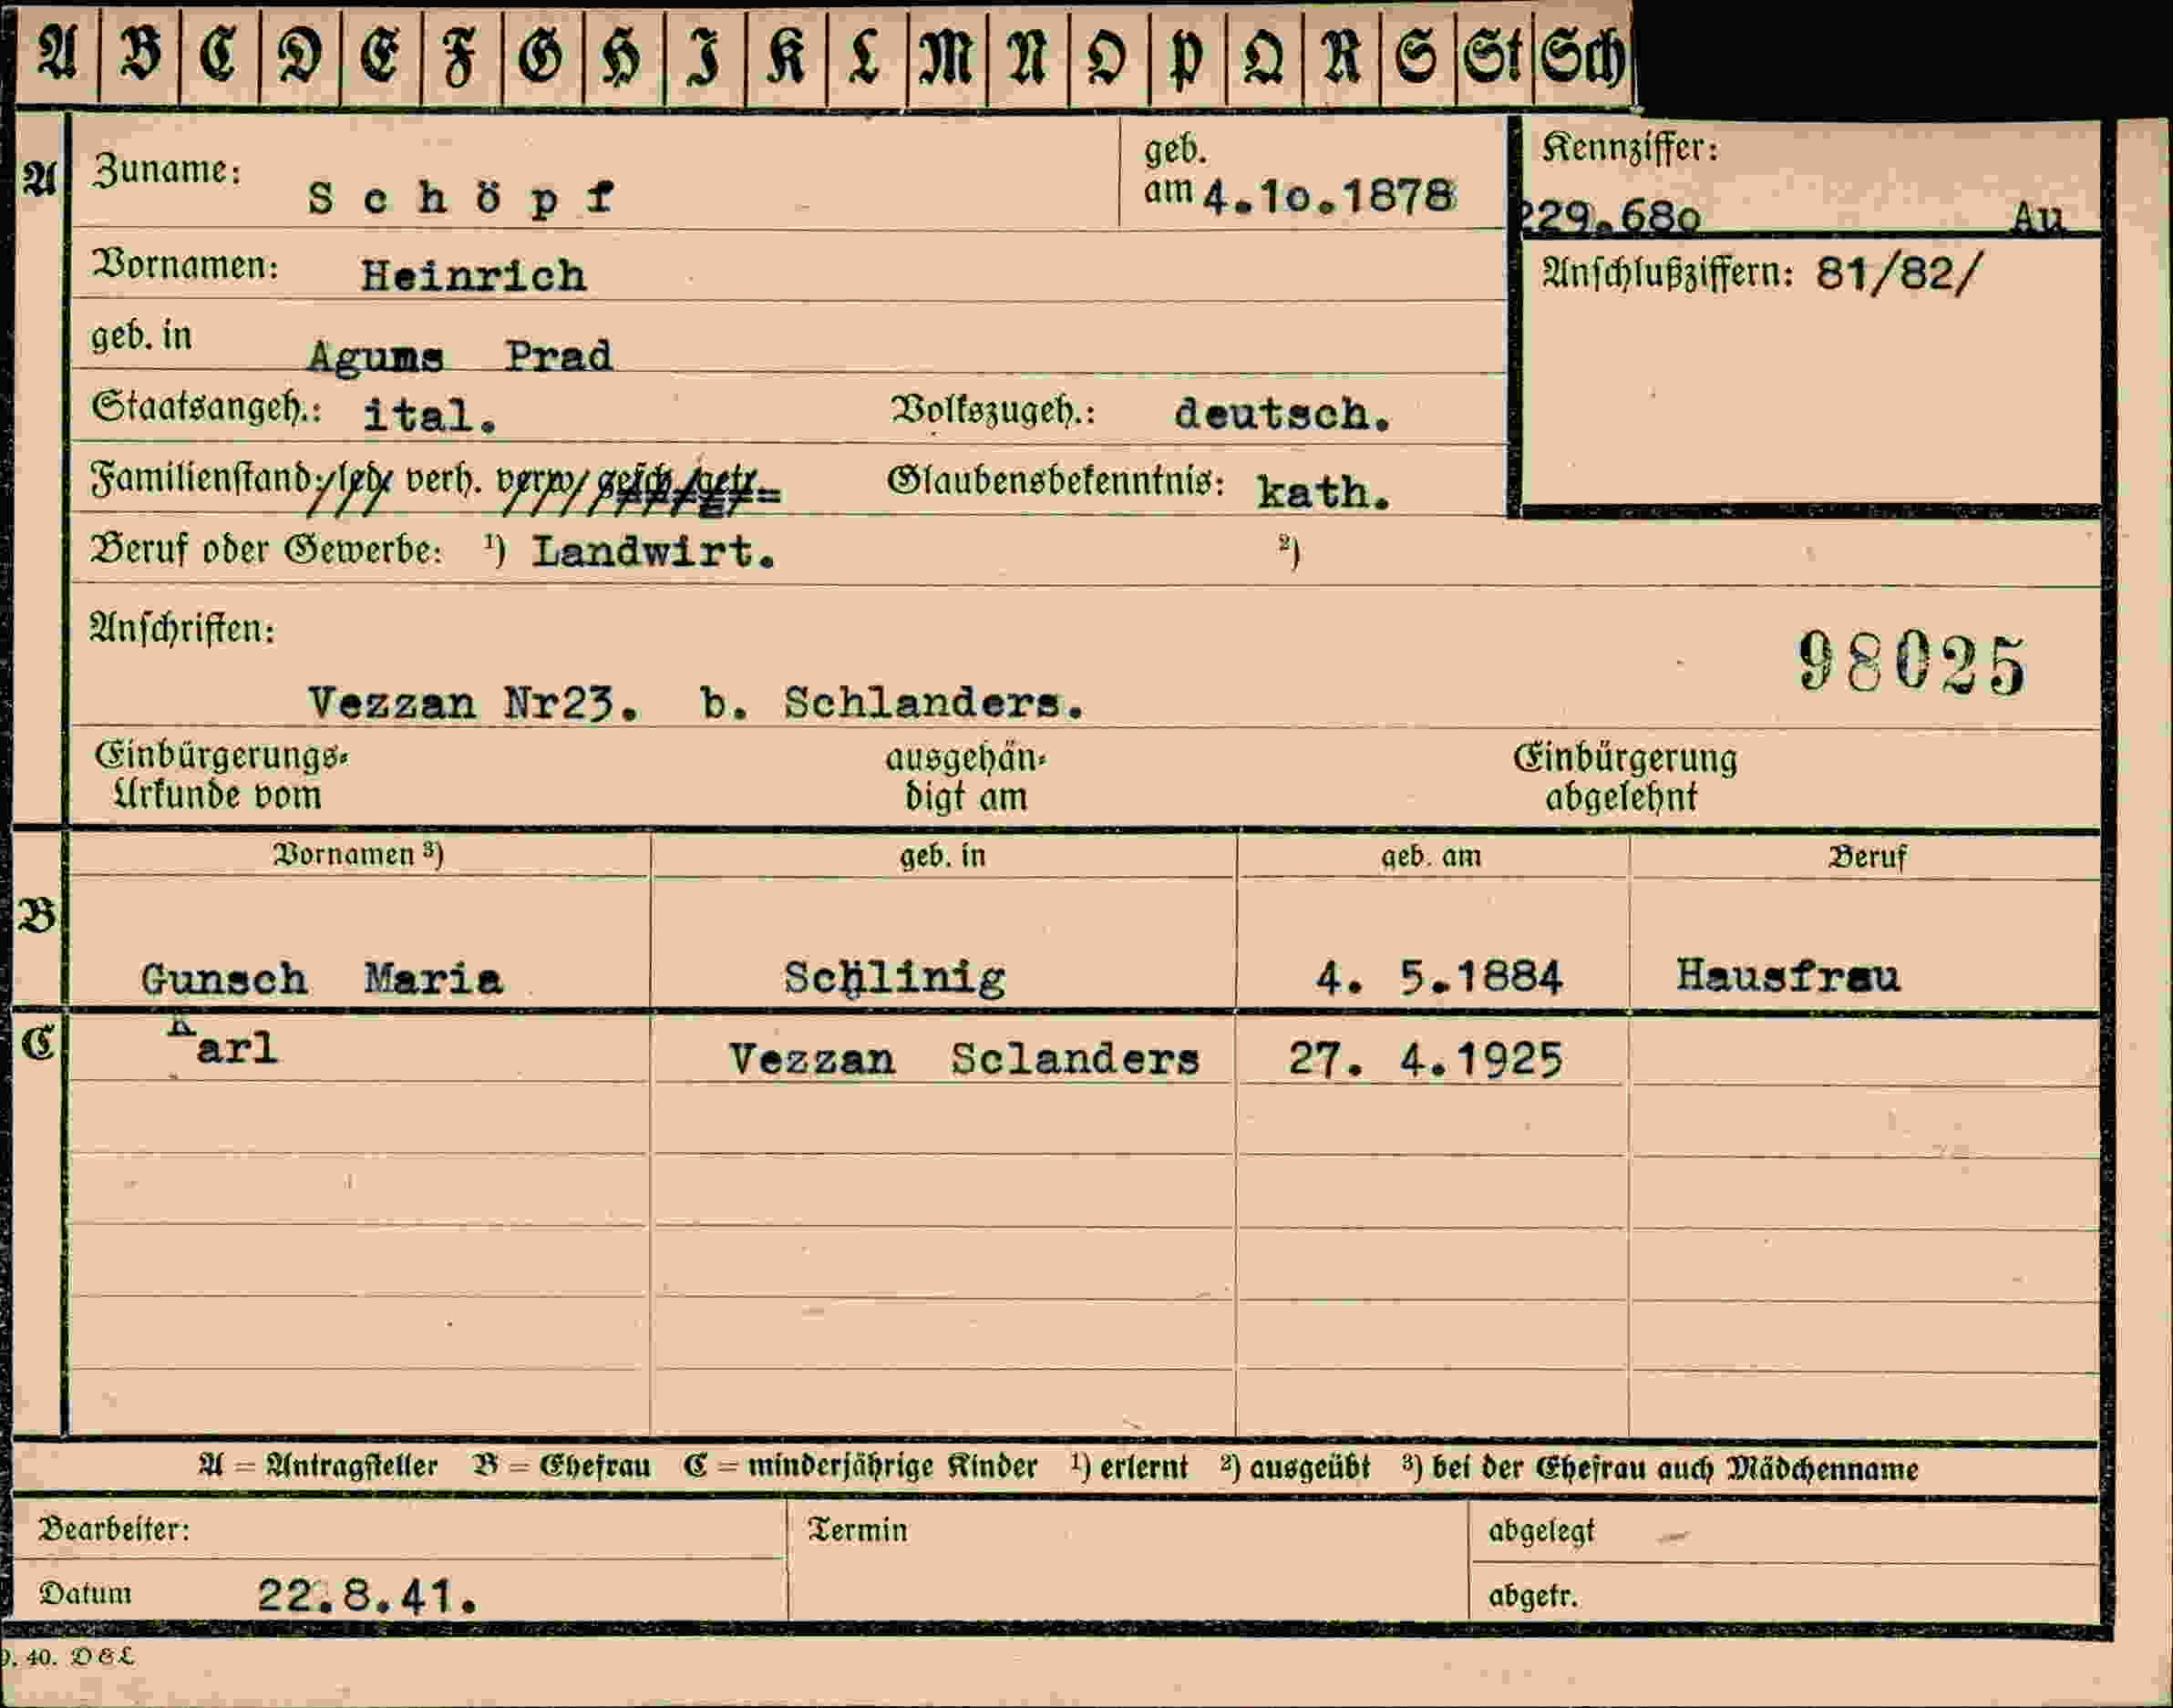 A B C D E F G H I K L M N O P Q R S St Sch
A Zuname: Schöpf geb. am 4.10.1878 Kennziffer: 229.680 Au
Vornamen: Heinrich Anschlußziffern: 81/82/
geb. in Agums Prad
Staatsangeh.: ital. Volkszugeh.: deutsch.
Familienstand: led. verh. verw. gesch. getr. Glaubensbekenntnis: kath.
Beruf oder Gewerbe: ¹) Landwirt. ²)
Anschriften:
98025
Vezzan Nr23. b. Schlanders.
Einbürgerungs- ausgehän- Einbürgerung
Urkunde vom digt am abgelehnt
Vornamen ³) geb. in geb. am Beruf
B
Gunsch Maria Schlinig 4. 5.1884 Hausfrau
C Karl Vezzan Sclanders 27. 4.1925
A = Antragsteller B = Ehefrau C = minderjährige Kinder ¹) erlernt ²) ausgeübt ³) bei der Ehefrau auch Mädchenname
Bearbeiter: Termin abgelegt
Datum 22.8.41. abgetr.
40. D&L